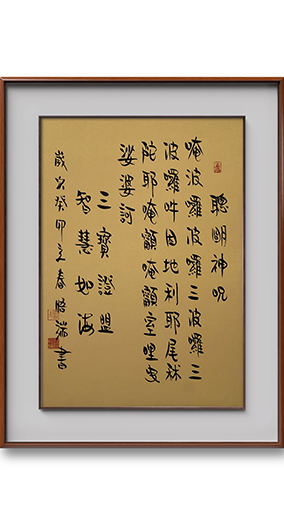 聰明神咒
唵波囉波囉三波囉三
波囉吽因地利耶尾秫
陀耶唵唵室哩曳
娑婆訶
三寶證盟
智慧如海
歲次癸卯立春書